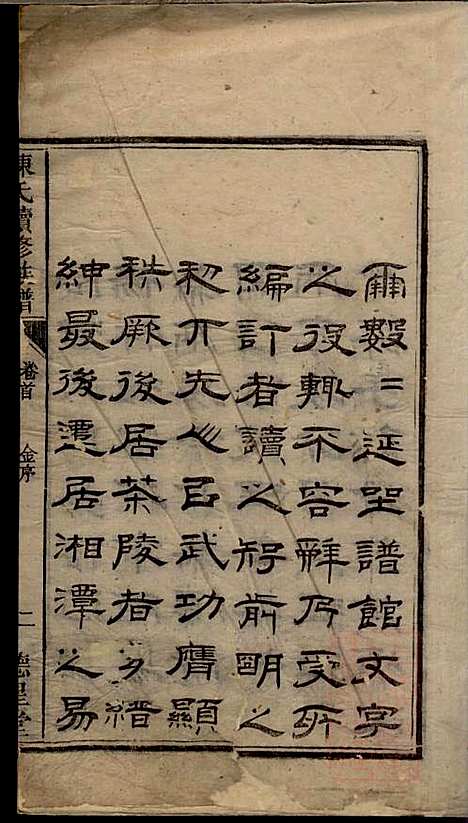 爾數數延至譜館文字
之役輒不容辭乃受所
編訂者讀之知前明之
初介夫公以武功膺顯
秩厥後居茶陵者多縉
紳最後遷居湘潭之易
陳氏續修族譜 卷首 金序 二 德星堂